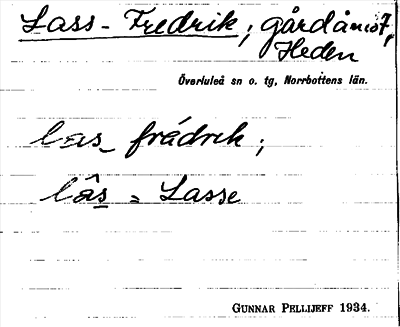 Lass-Fredrik; gård å no 7,
Heden
Överluleå sn o. tg, Norrbottens län.
las_ frádrɪk;
lâs = Lasse
GUNNAR PELLIJEFF 1934.